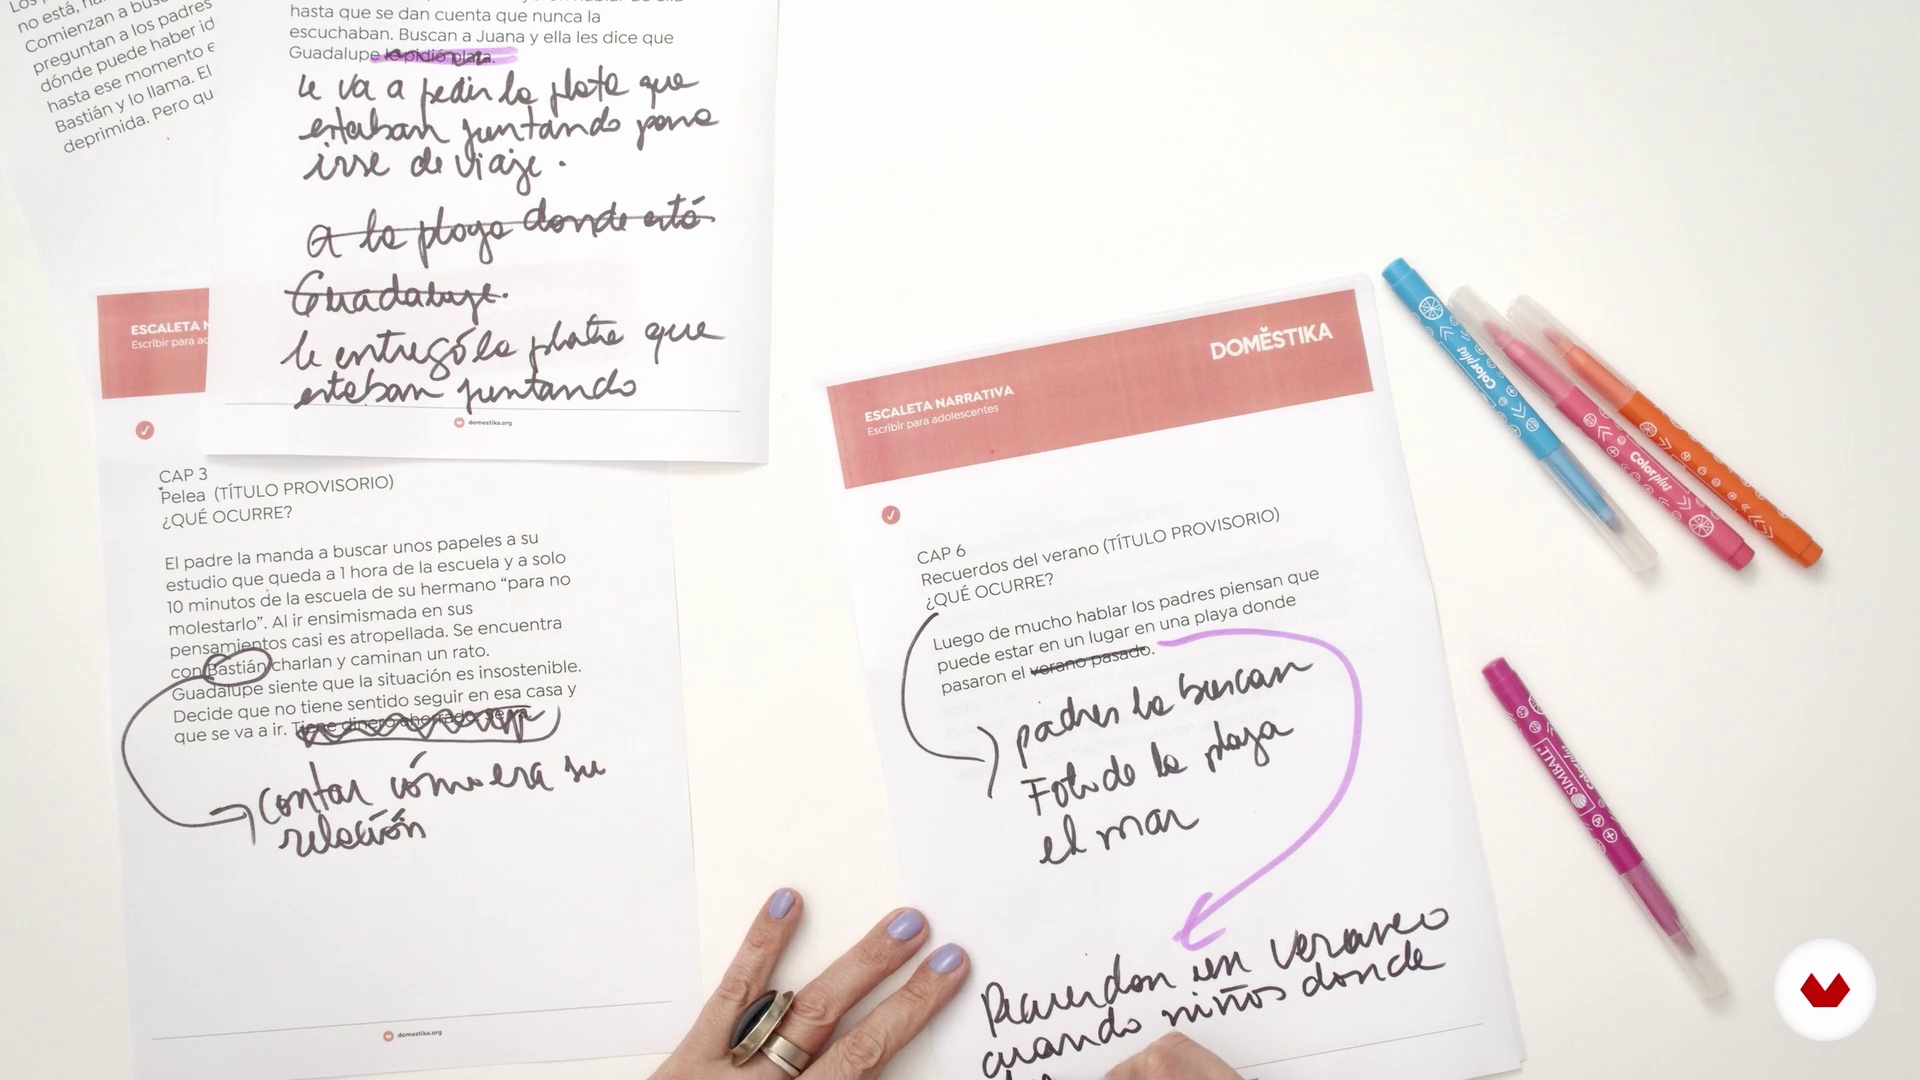 no está, ha
Comienzan a bus
preguntan a los padres
dónde puede haber id
hasta ese momento e
Bastián y lo llama. El
deprimida. Pero qu
hasta que se dan cuenta que nunca la
escuchaban. Buscan a Juana y ella les dice que
Guadalupe le pidió plata.
le va a pedir la plata que
estaban juntando para
irse de viaje.
a la playa donde está
Guadalupe.
le entregó la plata que
estaban juntando
domestika.org
ESCALETA N
Escribir para ad
CAP 3
Pelea (TÍTULO PROVISORIO)
¿QUÉ OCURRE?
El padre la manda a buscar unos papeles a su
estudio que queda a 1 hora de la escuela y a solo
10 minutos de la escuela de su hermano “para no
molestarlo”. Al ir ensimismada en sus
pensamientos casi es atropellada. Se encuentra
con Bastián charlan y caminan un rato.
Guadalupe siente que la situación es insostenible.
Decide que no tiene sentido seguir en esa casa y
que se va a ir. Tiene dinero ahorrado. Se va
contar cómo era su
relación
domestika.org
DOMĚSTIKA
ESCALETA NARRATIVA
Escribir para adolescentes
CAP 6
Recuerdos del verano (TÍTULO PROVISORIO)
¿QUÉ OCURRE?
Luego de mucho hablar los padres piensan que
puede estar en un lugar en una playa donde
pasaron el verano pasado.
padres la buscan
Foto de la playa
el mar
Recuerdan un veraneo
cuando niños donde
Colorplus
Colorplus
SIMBALL
Colorplus